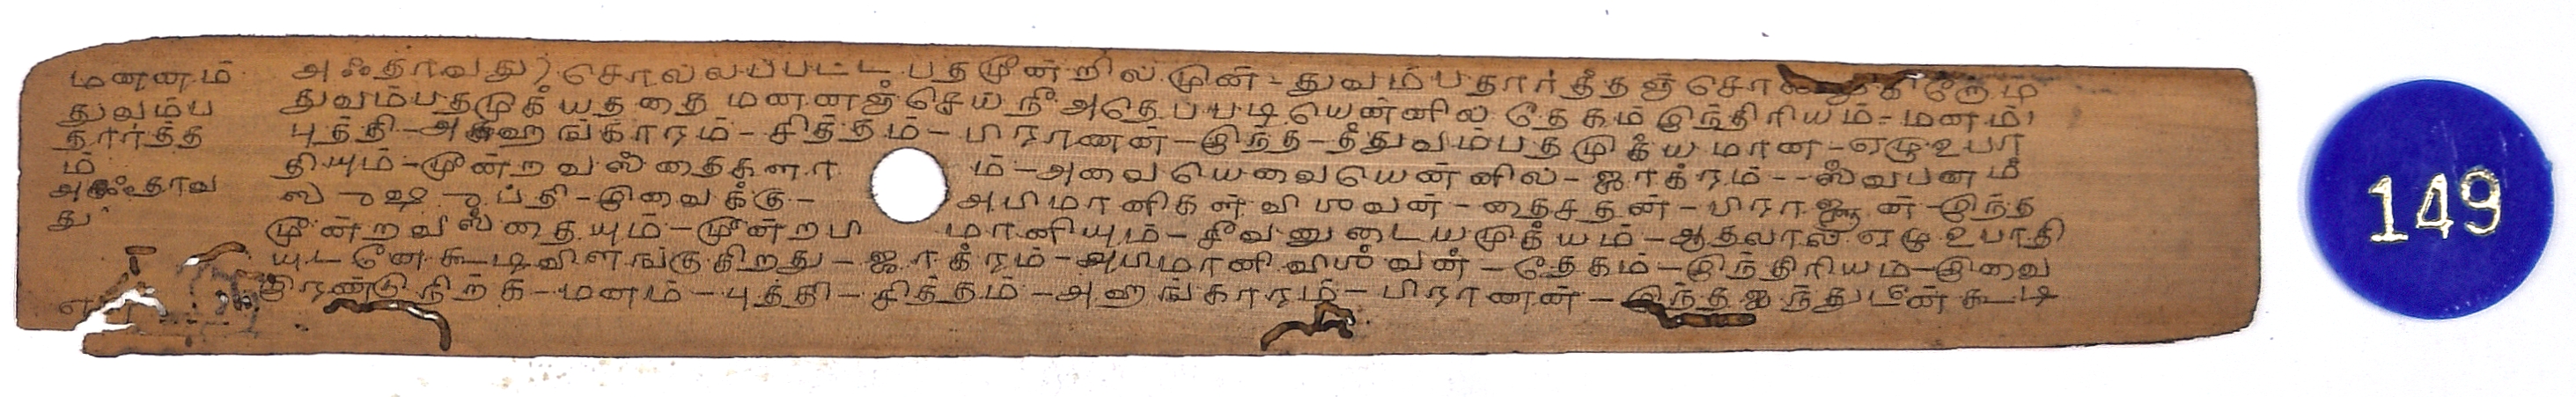 மனனம் அஃதாவது) சொல்லப்பட்ட பதமூன்றில் முன் - துவம்பதார்த்தஞ் சொல்லுகிறேம
துவம்ப துவம்பதமுக்யததை மனனஞ்செய் நீ அதெப்படி யென்னில் தேகம் இந்திரியம் - மனம்
தார்த்த புத்தி - அஹங்க்காரம் - சித்தம் - பிராணன் - இந்த - த்துவம்பதமுக்ய மான - ஏழு உபா
ம் தியும் - மூன்றவஸ்தைகளா ம் - அவை யெவையென்னில் - ஜாக்ரம் - - ஸ்வபனம்
அஃதாவ ஸுஷுப்தி - இவைக்கு - அபிமானிகள் விஶ்வன் - தைசதன் - பிராஜ்ஞன் - இந்த
து மூன்றவஸ்தையும் - மூன்றபி மானியும் - சீவனுடையமுக்யம் - ஆதலால் ஏழு உபாதி
யுடனே கூடிவிளங்குகிறது - ஜாக்ரம் - அபிமானி விஶ்வன் - தேகம் - இந்திரியம் - இவை
இரண்டுநிற்க - மனம் - புத்தி - சித்தம் - அஹங்காரம் - பிராணன் - இந்தஐந்துடன் கூடி
149